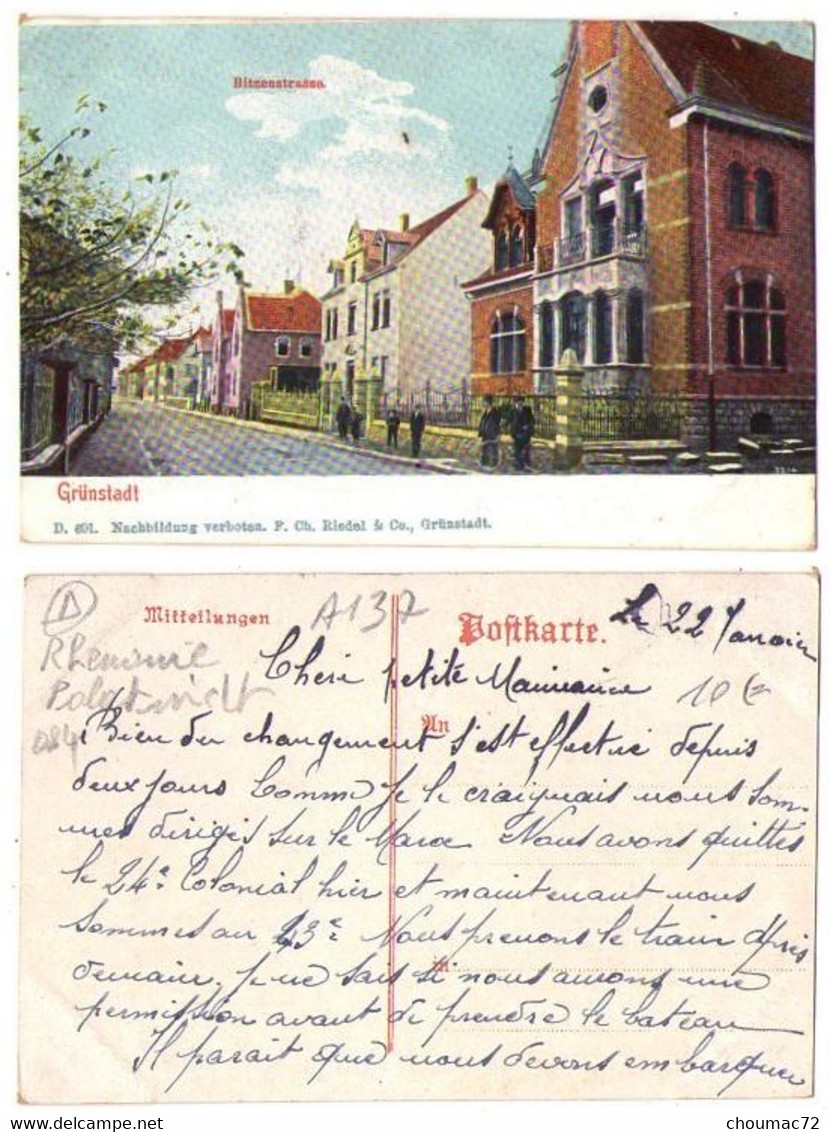 Bitzenstrasse.
Grünstadt
D. 691. Nachbildung verboten. F. Ch. Riedel & Co., Grünstadt.
Mitteilungen
A137
Postkarte.
Le 22 Janvier
Rhenanie
Palatinat
084
Chère petite Mamannie
10 €
An
Bien du changement s'est effectué depuis
deux jours Comme je le craignais nous som-
mes dirigés sur le Maroc Nous avons quittés
le 24e Colonial hier et maintenant nous
sommes au 23e Nous prenons le train Après
demain, Je ne sais si nous aurons une
in
permission avant de prendre le bateau
Il parait que nous devons embarquer
choumac72